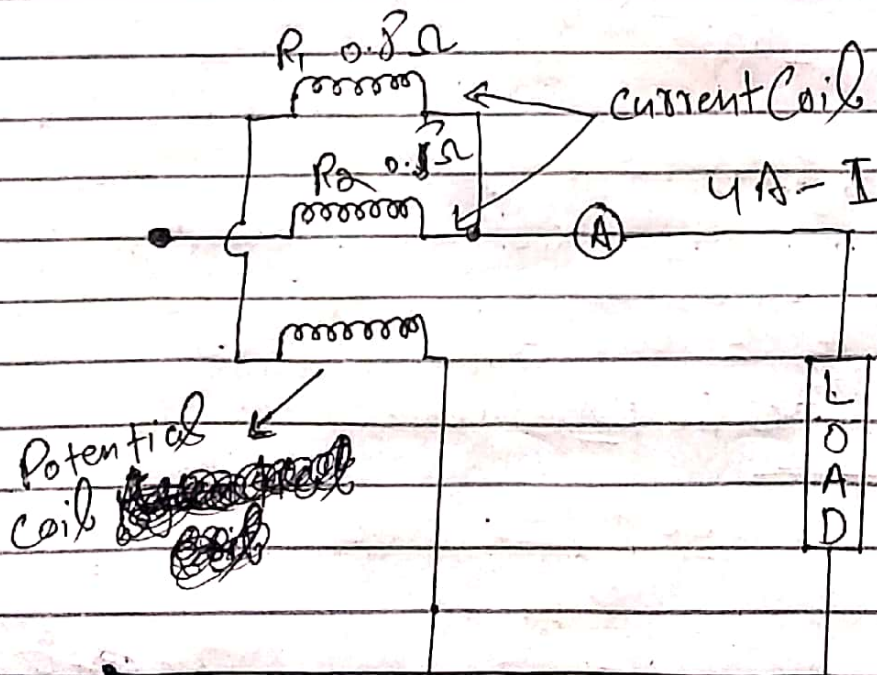 R₁ 0.8 Ω
Current Coil
R₂
4A - I
A
Potential
Coil
L
O
A
D